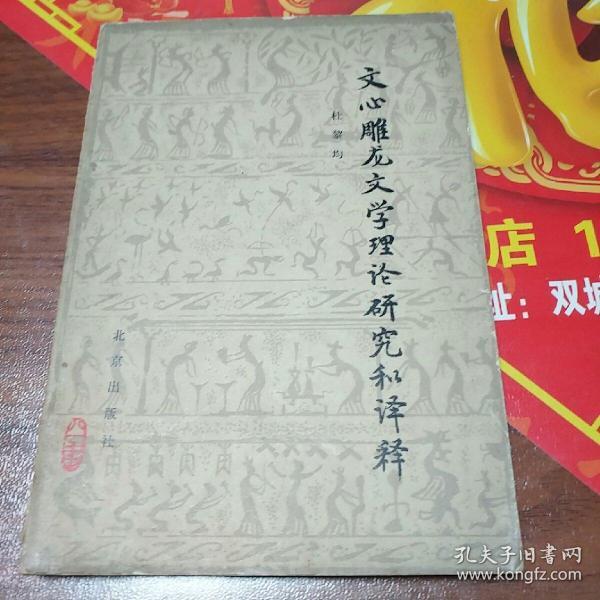 文心雕龙文学理论研究和译释
杜黎均
北京出版社
店 1
址：双城
孔夫子旧书网
www.kongfz.com